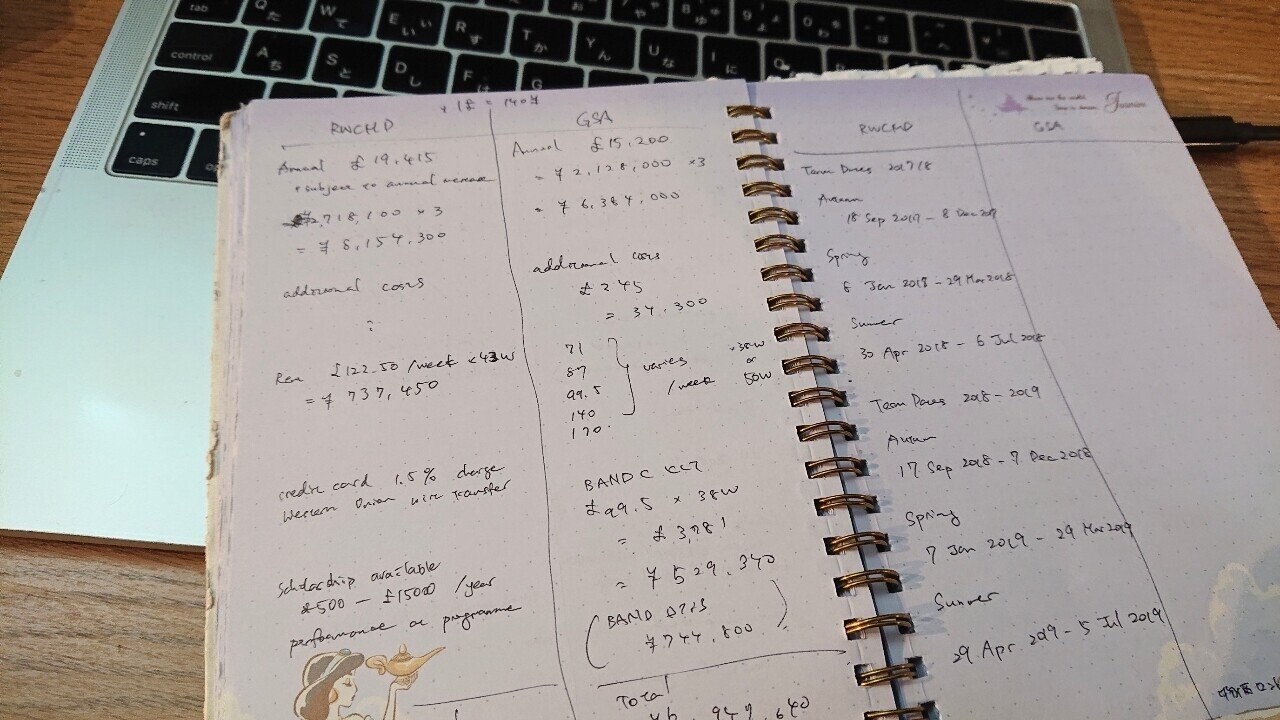 * 1£ = 140¥
RWCMD
Annual £19,415
* subject to annual increase
2,718,100 × 3
= ¥8,154,300
additional costs
?
Rent £122.50 /week × 43w
= ¥737,450
credit card 1.5% charge
Western Union wire transfer
Scholarship available
£500 - £15000 /year
performance on programme
GSA
Annual £15,200
= ¥2,128,000 ×3
= ¥6,384,000
additional costs
£245
= 34,300
71
87
99.5
140
170
varies
/week
×38w
or
50w
BAND C
£99.5 × 38w
= £3,781
= ¥529,340
(BAND
¥744,800)
Total
¥6,947,640
RWCMD
GSA
Jasmine
Term Dates 2017/8
Autumn
18 Sep 2017 - 8 Dec 2017
Spring
8 Jan 2018 - 29 Mar 2018
Summer
30 Apr 2018 - 6 Jul 2018
Term Dates 2018 - 2019
Autumn
17 Sep 2018 - 7 Dec 2018
Spring
7 Jan 2019 - 29 Mar 2019
Summer
29 Apr 2019 - 5 Jul 2019
tab
Q た
W て
E い
R す
T か
Y ん
control
A ち
S と
D し
F は
G
U な
I に
O
shift
caps